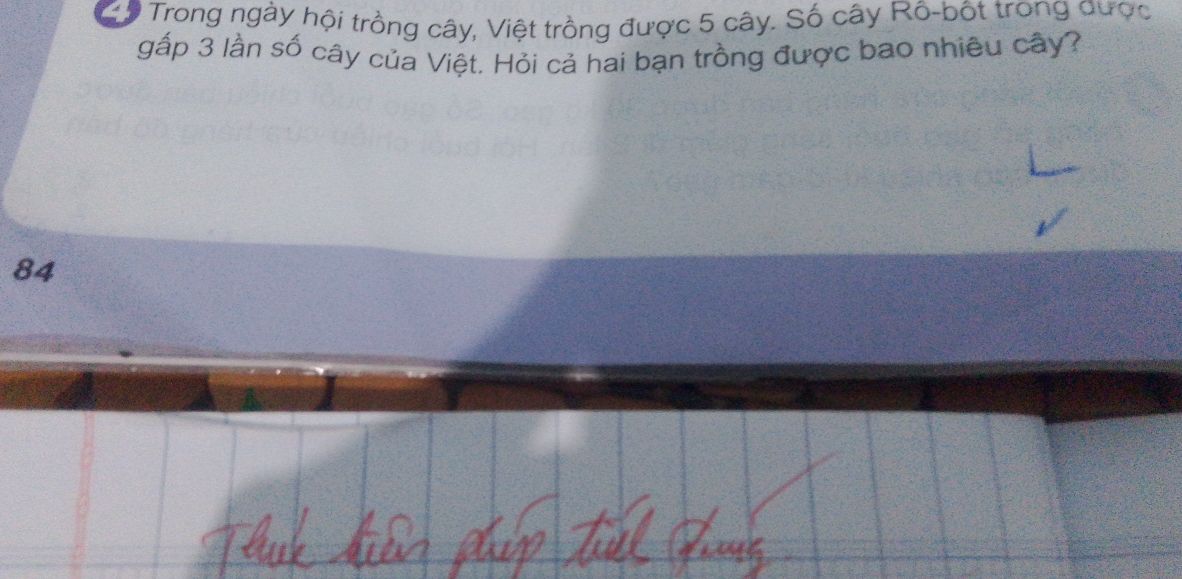 4 Trong ngày hội trồng cây, Việt trồng được 5 cây. Số cây Rô-bốt trồng được
gấp 3 lần số cây của Việt. Hỏi cả hai bạn trồng được bao nhiêu cây?
84
phép